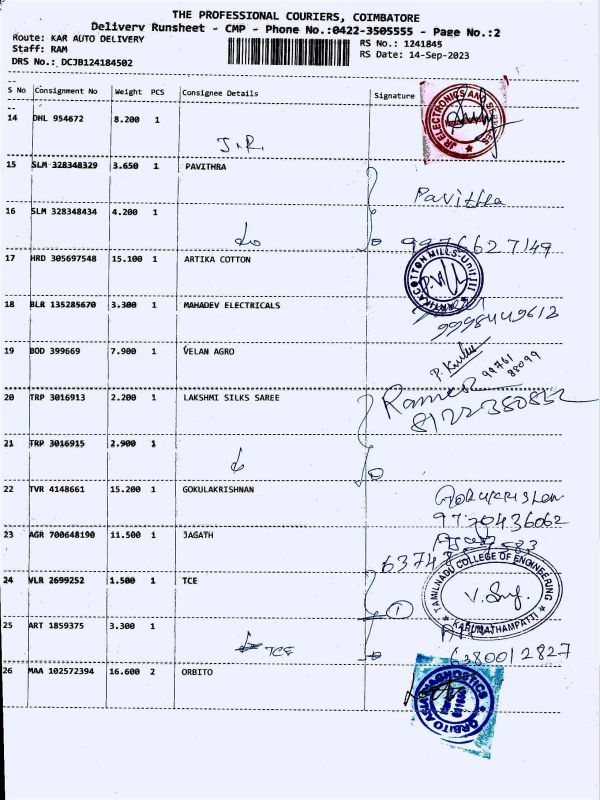 THE PROFESSIONAL COURIERS, COIMBATORE
Delivery Runsheet - CMP - Phone No.:0422-3505555 - Page No.:2
Route: KAR AUTO DELIVERY
Staff: RAM
DRS No.: DCJB124184502
RS No.: 1241845
RS Date: 14-Sep-2023
S No Consignment No Weight PCS Consignee Details Signature
14 DHL 954672 8.200 1
J.R.
JR ELECTRONICS AND
15 SLM 328348329 3.650 1 PAVITHRA
Pavithra
16 SLM 328348434 4.200 1
9976627149
17 HRD 305697548 15.100 1 ARTIKA COTTON
ARTIKA COTTON MILLS-Unit III
18 BLR 135285670 3.300 1 MAHADEV ELECTRICALS
9998449612
19 BOD 399669 7.900 1 VELAN AGRO
99761
88099
20 TRP 3016913 2.200 1 LAKSHMI SILKS SAREE
8122380852
21 TRP 3016915 2.900 1
22 TVR 4148661 15.200 1 GOKULAKRISHNAN
23 AGR 700648190 11.500 1 JAGATH
24 VLR 2699252 1.500 1 TCE
TAMILNADU COLLEGE OF ENGINEERING
KARUMATHAMPATTI
25 ART 1859375 3.300 1
TCE
6380012827
26 MAA 102572394 16.600 2 ORBITO
ORBITO ASIA DIAGNOSTICS